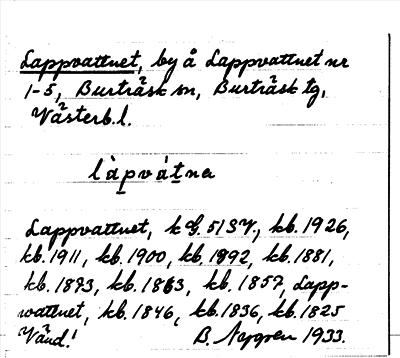 Lappvattnet, by å Lappvattnet nr
1-5, Burträsk sn, Burträsk tg,
Västerb.l.
làpvátne
Lappvattnet, kb. 1926,
kb. 1911, kb. 1900, kb. 1892, kb. 1881,
kb. 1873, kb. 1863, kb. 1857, Lapp-
wattnet, kb. 1846, kb. 1836, kb. 1825
Vänd! B. Nygren 1933.